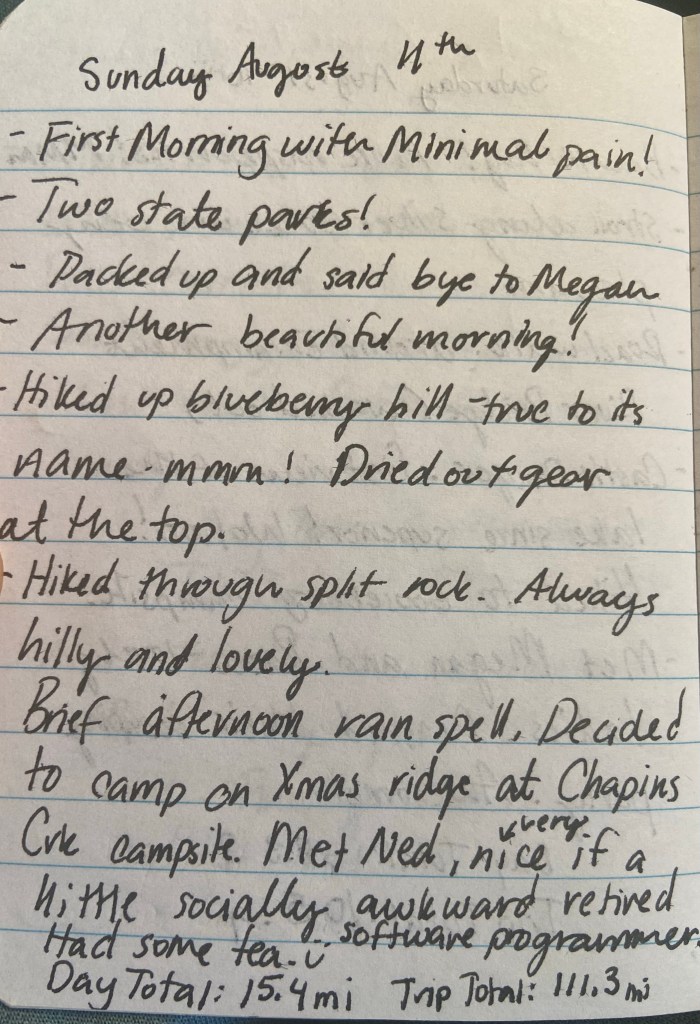 Sunday August 11th
- First Morning with Minimal pain!
- Two state parks!
- Packed up and said bye to Megan
- Another beautiful morning!
- Hiked up blueberry hill - true to its
name - mmm! Dried out gear
at the top.
- Hiked through split rock. Always
hilly and lovely.
Brief afternoon rain spell. Decided
to camp on Xmas ridge at Chapins
Crk campsite. Met Ned, very nice if a
little socially awkward retired
software programmer.
Had some tea. :)
Day Total: 15.4 mi Trip Total: 111.3 mi